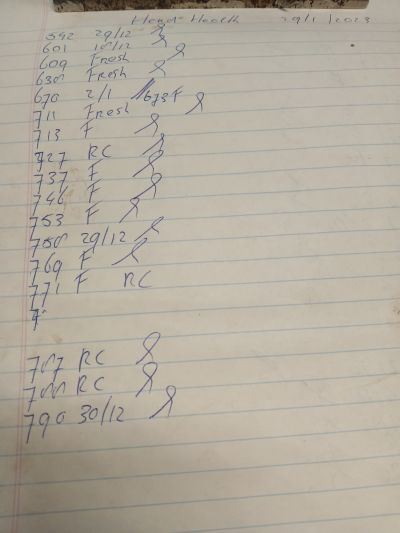 Herd Health 29/1/2023
592 29/12
601 18/12
609 Fresh
638 Fresh
670 2/1 673 F
711 Fresh
713 F
727 RC
737 F
746 F
753 F
758 29/12
769 F
771 F RC
787 RC
788 RC
790 30/12